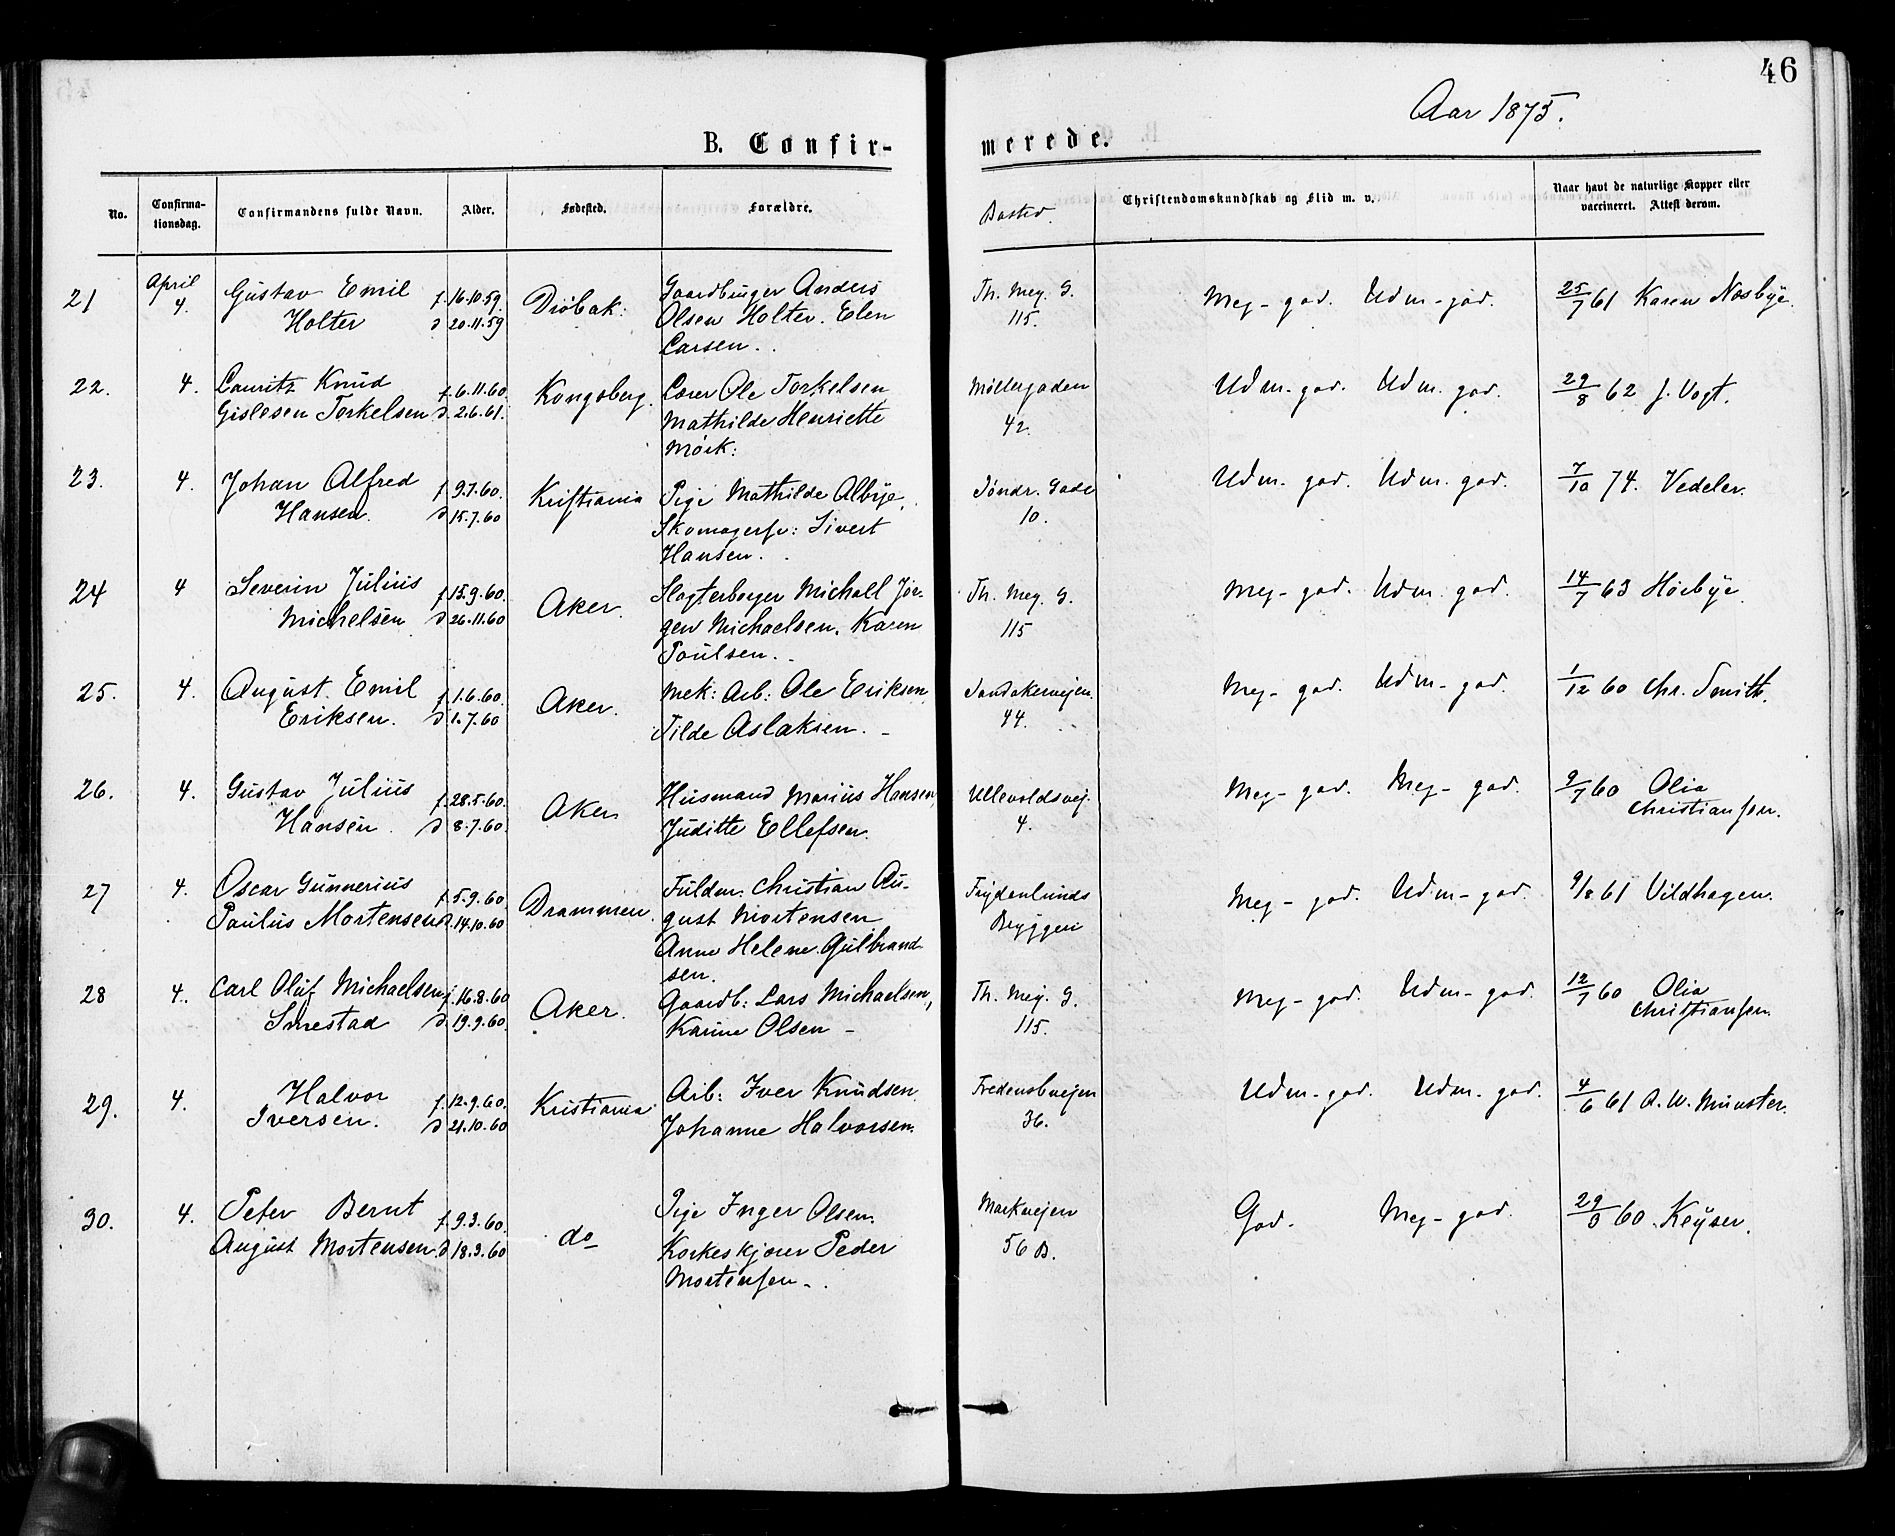 46
Aar 1875.
B. Confir-
merede.
No.
Confirma-
tionsdag.
Confirmandens fulde Navn.
Alder.
Fødested.
Forældre.
Bosted.
Christendomskundskab og Flid m. v.
Naar havt de naturlige Kopper eller
vaccineret. Attest derom.
21 April 4. Gustav Emil f. 16.10.59. Drøbak. Gaardbruger Anders Th. Mey. G. Meg- god. Udm- god. 25/7 61 Karen Nosbye.
Holter d 20.11.59 Olsen Holter. Elen 115.
Larsen.
22. 4. Lauritz Knud f. 6.11.60. Kongsberg. Lærer Ole Torkelsen Møllergaden Udm. god. Udm. god. 29/8 62 J. Vogt.
Gislesen Torkelsen d 2.6.61. Mathilde Henriette 42.
Mørk:
23. 4. Johan Alfred f 9.7.60. Kristiania Pige Mathilde Albye, Töndr. Gade Udm. god. Udm. god. 7/10 74. Vedeler.
Hansen. d 15.7.60 Skomagersv: Sivert 10.
Hansen.
24 4 Severin Julius f 15.9.60. Aker. Slagterborger Michall Jør- Th. Mey. G. Meg- god. Udm. god. 14/7 63 Höebye
Michelsen d 26.11.60 gen Michaelsen. Karen 115
Poulsen.
25. 4. August Emil f 1.6.60. Aker. Mek: Arb: Ole Eriksen Sandakerveien. Meg- god. Udm- god. 1/12 60 Chr. Smith.
Eriksen. d 1.7.60 Tilde Aslaksen. 44.
26. 4. Gustav Julius f. 28.5.60. Aker Husmand Marius Hansen, Ullevoldsvej. Meg- god. Meg- god. 9/7 60 Olia
Hansen. d 8.7.60. Juditte Ellefsen. 4. Christiansen.
27 4. Oscar Gunnerius f. 5.9.60. Drammen. Fuldm. Christian Au- Frydenlunds Meg- god. Udm- god. 9/8 61 Vildhagen.
Paulus Mortensen d. 14.10.60 gust Mortensen Bryggeri
Anne Helene Gulbrand
sen.
28 4. Carl Oluf Michaelsen f. 16.8.60 Aker. Gaardb: Lars Michaelsen, Th. Mej. G. Meg- god. Udm- god. 12/7 60 Olia
Smestad d. 19.9.60. Karine Olsen - 115. Christiansen.
29. 4. Halvor f. 12.9.60. Kristiania Arb: Iver Knudsen Fredensbvejen Udm- god. Udm. god. 4/6 61 A. W. Münster.
Iversen. d 21.10.60 Johanne Halvorsen. 36.
30. 4. Peter Bernt f. 9.3.60. do Pige Inger Olsen. Markvejen God. Meg- god. 60. Keyser.
August Mortensen. d 18.3.60 Korkeskjærer Peder 56 B.
Mortensen-.